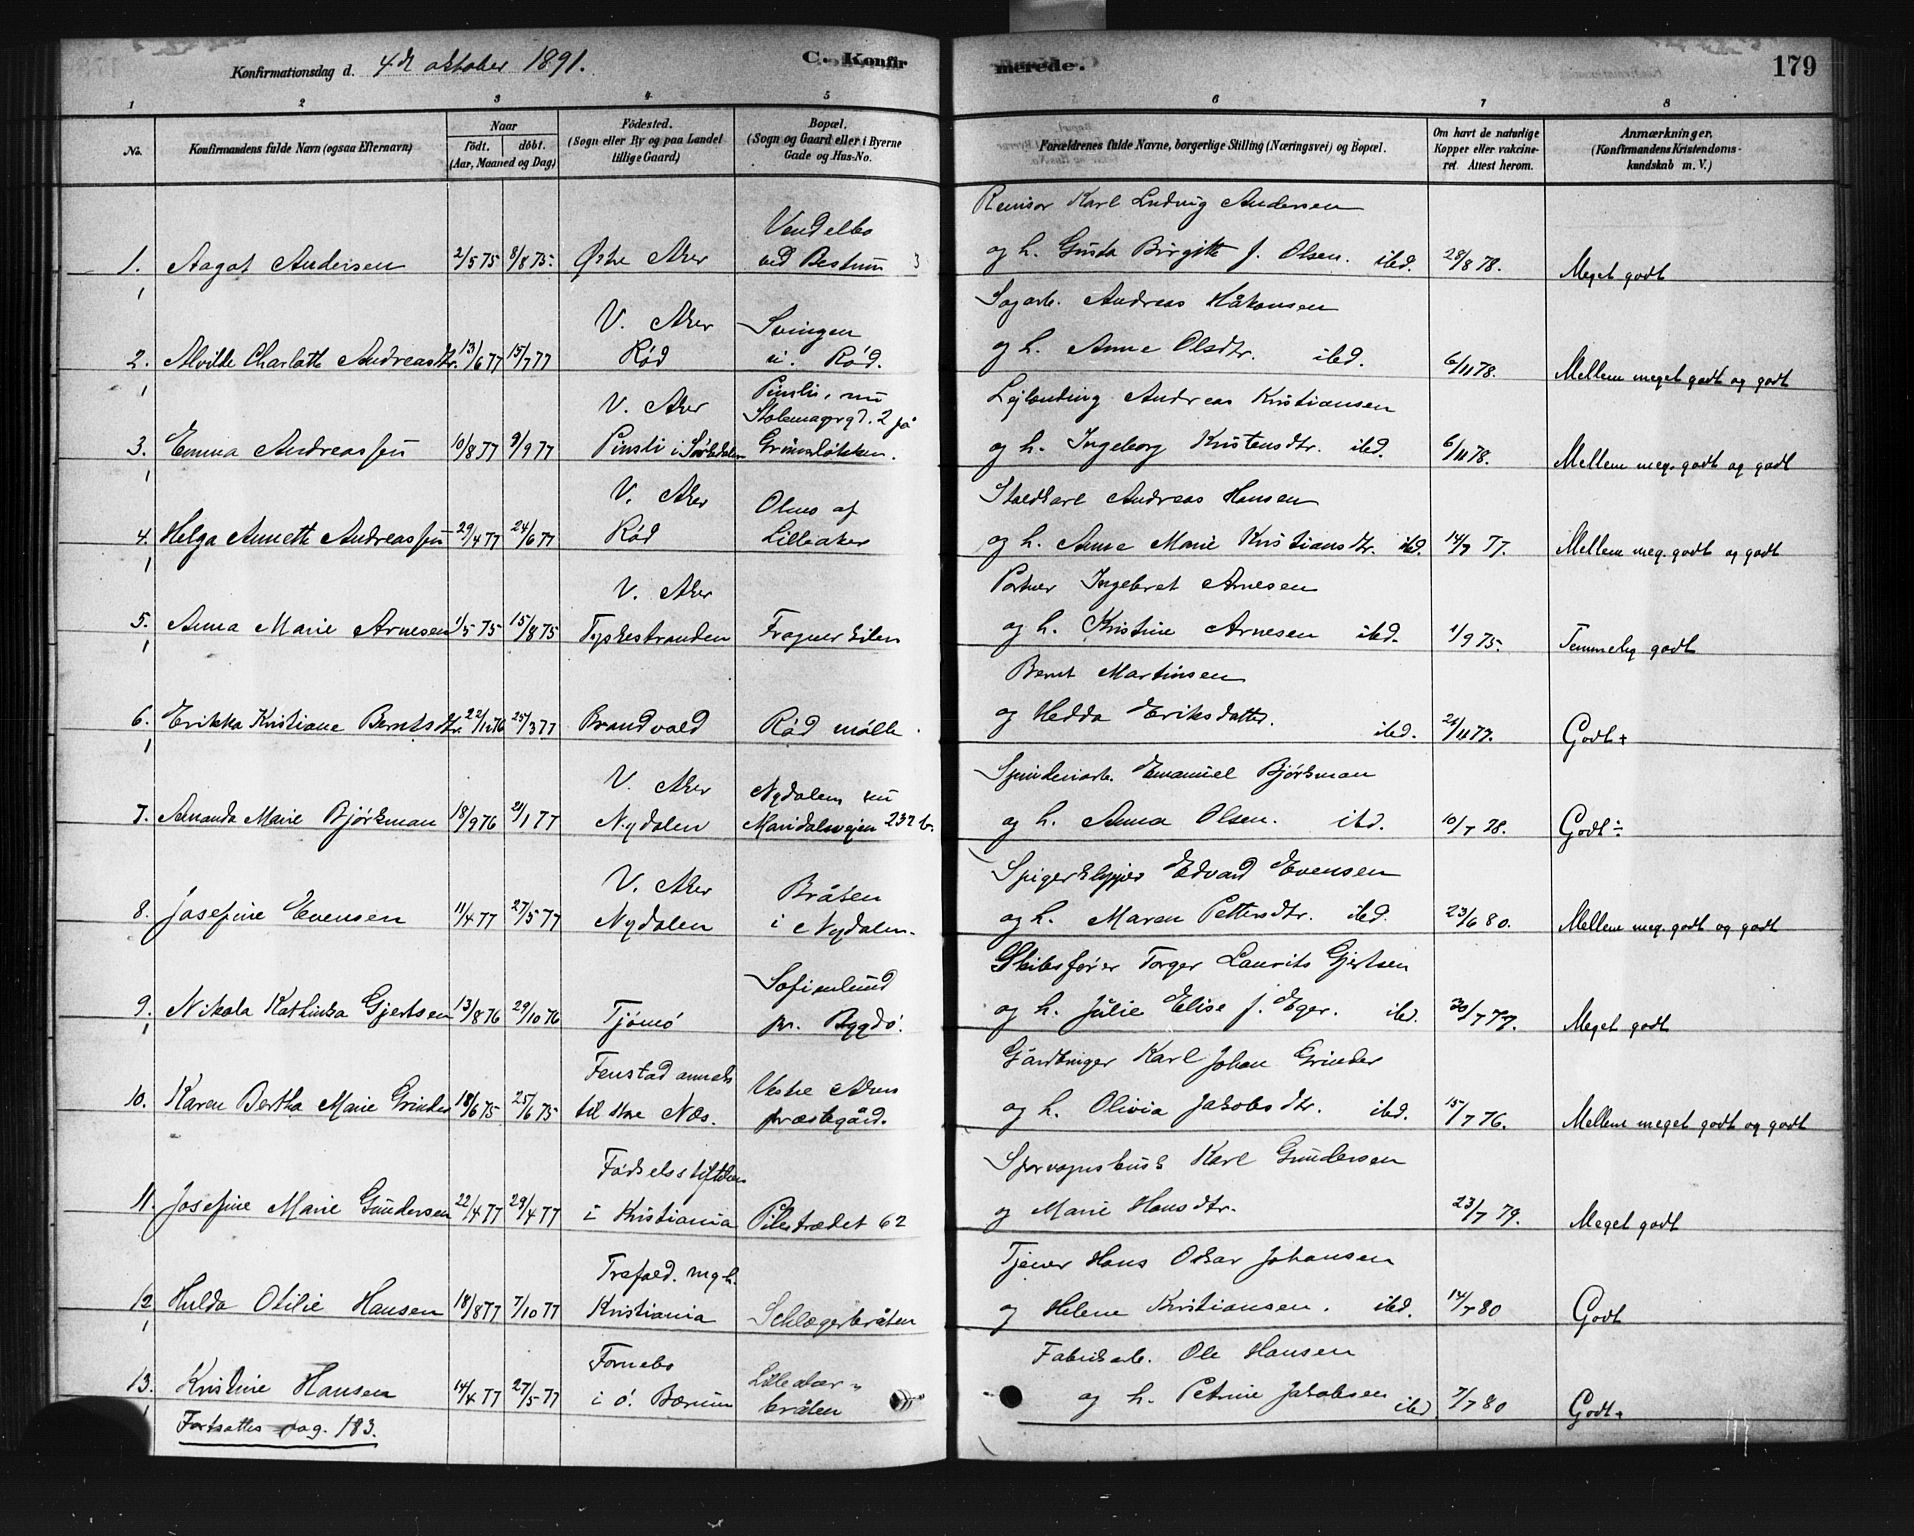 Konfirmationsdag d. 4de oktober 1891.
C. Konfirmerede.
179
1 2 3 4 5 6 7 8
No.
Konfirmandens fulde Navn (ogsaa Efternavn)
Naar
født. døbt.
(Aar, Maaned og Dag)
Fødested.
(Sogn eller By og paa Landet
tillige Gaard)
Bopæl.
(Sogn og Gaard eller i Byerne
Gade og Hus-No.
Forældrenes fulde Navne, borgerlige Stilling (Næringsvei) og Bopæl.
Om havt de naturlige
Kopper eller vakcine-
ret. Attest herom.
Anmærkninger.
(Konfirmandens Kristendoms-
kundskab m. V.)
Vendelbo
Revisor Karl Ludvig Andersen
1. Aagot Andersen 2/5 75 8/8 75. Østre Aker ved Bestum og h. Gusta Birgitte f. Olsen. ibd. 28/8 78. Meget godt
V. Aker Svingen Sagarb. Andreas Håkonsen
2. Alvilde Charlotte Andreasdtr. 13/6 77 15/7 77 Rød u. Rød. og h. Anne Olsdtr. ibd. 6/11 78. Mellem meget godt og godt
Pinsli, nu
V. Aker Stolemagergd. 2 på Lejlending Andreas Kristiansen
3. Emma Andreassen 10/8 77 9/9 77 Pinsli i Sørkedalen Grünerløkken. og h. Ingeborg Kristensdtr. ibd. 6/11 78. Mellem meg. godt og godt
V. Aker Olms af Staldkarl Andreas Hansen
4. Helga Annette Andreassen 29/4 77 24/6 77 Rød Lilleaker og h. Anne Marie Kristiansdtr. ibd. 14/9 77. Mellem meg. godt og godt
V. Aker Portner Ingebret Arnesen
5. Anna Marie Arnesen 1/5 75 15/8 75 Tyskestranden Frognerkilen og h. Kristine Arnesen ibd. 1/9 75. Temmelig godt
Bernt Martinsen
6. Erikka Kristiane Berntsdtr. 22/12 76 25/3 77 Brandvold Rød mølle. og Hedda Eriksdatter. ibd. 21/11 77. Godt+
V. Aker Nydalen nu Spinderiarb. Emanuel Bjørkman
7. Amanda Marie Bjørkman 18/9 76 21/1 77 Nydalen Maridalsvejen 232 b. og h. Anna Olsen. ibd. 10/7 78. Godt÷
V. Aker Bråten Spigerklipper Edvard Evensen
8. Josefine Evensen 11/4 77 27/5 77 Nydalen i Nydalen. og h. Maren Pettersdtr. ibd. 23/6 80. Mellem meg. godt og godt
Sofienlund Skibsfører Torger Laurits Gjertsen
9. Nikola Kathinka Gjertsen 13/8 76 29/10 76 Tjømø pr. Bygdø. og h. Julie Elise f. Eger. ibd. 30/7 77. Meget godt
Fenstad anneks Vestre Akers Gårdbruger Karl Johan Grinder
10. Karen Bertha Marie Grinder 18/6 75 25/6 75 til store Næs. præstegård. og h. Olivia Jakobsdtr. ibd. 15/7 76. Mellem meget godt og godt
Fødselsstiftelsen Sporvognskusk Karl Gundersen
11. Josefine Marie Gundersen 22/4 77 29/4 77 i Kristiania Pilestrædet 62 og Marie Hansdtr. 23/7 79. Meget godt
Trefold. mgh. Tjener Hans Oskar Johansen
12 Hulda Otilie Hansen 18/8 77 7/10 77 Kristiania Schlægerbråten og Helene Kristiansen. ibd. 14/7 80 Godt
Fornebo Lilleaker- Fabrikarb. Ole Hansen
13. Kristine Hansen 14/4 77 27/5 77 i ø. Bærum bråten og h. Petrine Jakobsen ibd. 7/7 80 Godt+
Fortsættes pag. 183.